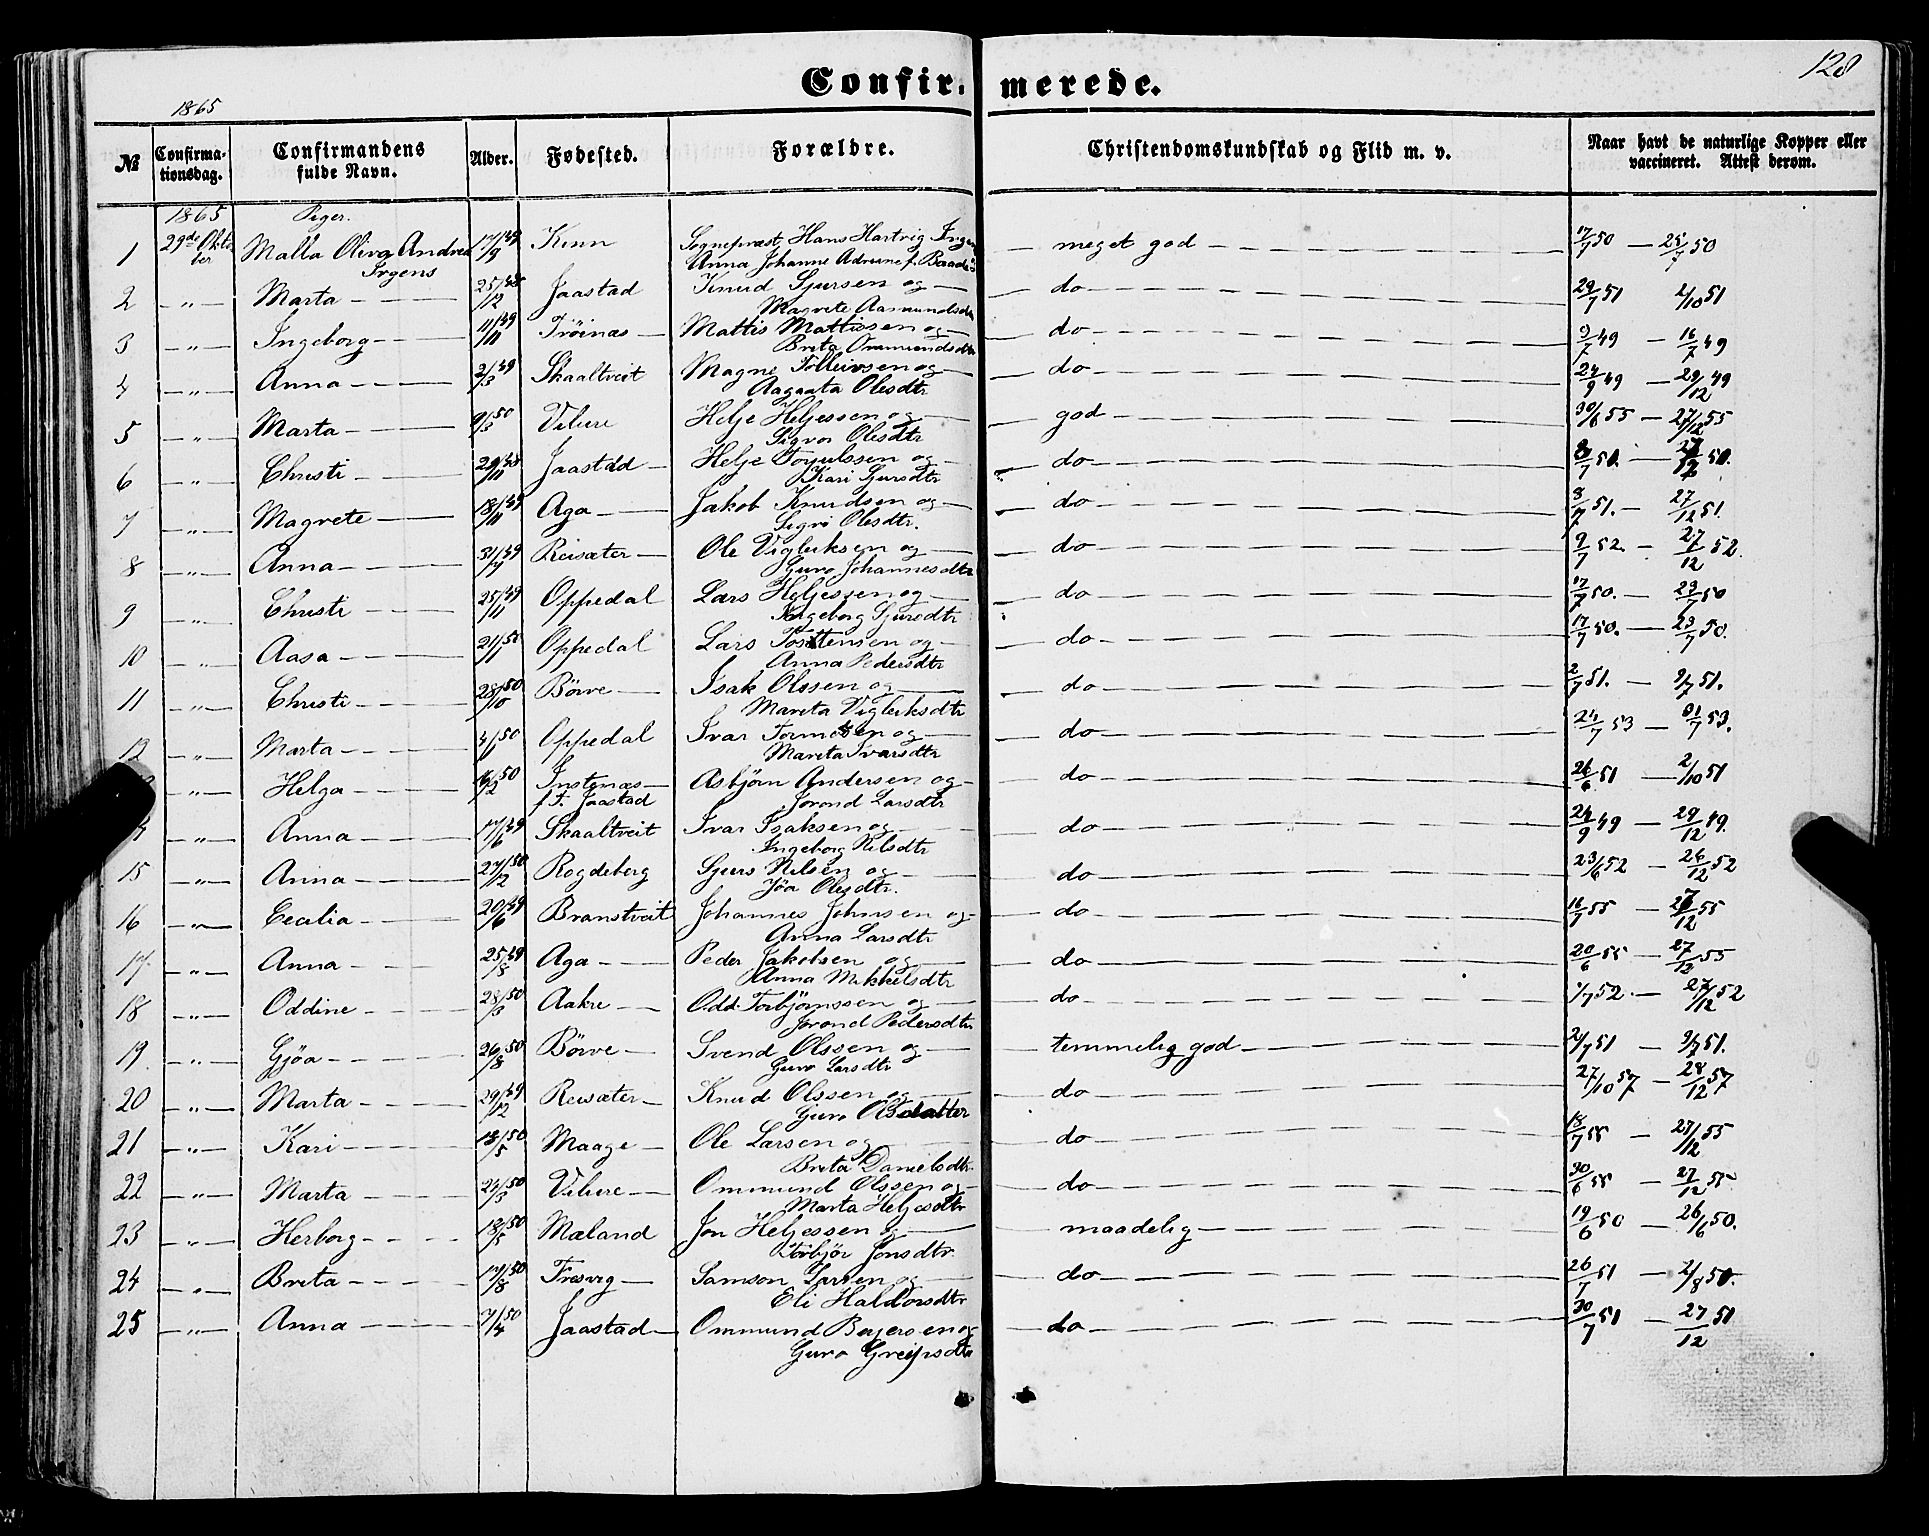 128
Confir- merede.
1865
№ Confirma-tionsdag. Confirmandens fulde Navn. Alder. Fødested. Forældre. Christendomskundskab og Flid m. v. Naar havt de naturlige Kopper eller vaccineret. Attest derom.
1865 Piger.
1 29de Oktober Malla Oliva Andrea Irgens 17/9 49 Kinn Sognepræst Hans Hartvig Irgens Anna Johanne Adriane f. meget god 17/7 50 — 25/7 50
2 —"— Marta 25/12 48 Jaastad Knud Sjursen og Magrete Aamundsdtr do 29/7 51 2/10 51
3 —"— Ingeborg 11/11 49 Trøinæs Mattis Mattissen og Brita Ommundsdtr do 9/7 49 — 16/7 49
4 —"— Anna 2/3 49 Skaaltveit Magne Tolleivsen og Aagaata Olesdtr do 24/9 49 — 29/12 49
5 —"— Marta 9/3 50 Vilure Helje Heljessen og Sigvor Olesdtr god 30/6 55 — 27/12 55
6 —"— Christi 29/11 48 Jaastad Helje Torjulssen og Kari Sjursdtr do 8/7 51. — 27/12 51.
7 —"— Magrete 18/11 49 Aga Jakob Knudsen og Sigri Olesdtr. do 8/7 51. — 27/12 51.
8 —"— Anna 49 Reisæter Ole Vigleiksen og Guro Johannesdtr do 9/7 52. — 27/12 52.
9 —"— Christi 25/11 49 Oppedal Lars Heljessen og Ingeborg Sjursdtr do 17/7 50. — 23/7 50
10 —"— Aasa 21/1 50 Oppedal Lars Tostensen og Anna Pedersdtr do 17/7 50. — 23/7 50.
11 —"— Christi 28/10 50 Børve Isak Olssen og Mareta Vigleiksdtr do 2/7 51. — 9/7 51.
12 —"— Marta 50 Oppedal Ivar Tormodsen og Mareta Ivarsdtr do 24/7 53 — 31/7 53.
—"— Helga 16/2 50 Instenæs f. T. Jaastad Asbjørn Andersen og Jorond Larsdtr do 26/6 51 — 2/10 51
—"— Anna 17/6 49 Skaaltveit Ivar Isaksen og Ingeborg Nilsdtr do 24/9 49 — 29/12 49.
15 —"— Anna 27/12 50 Rogdeberg Sjurs Nilsen og Jøa Olesdtr. do 23/6 52 — 26/12 52
16 —"— Cecilia 20/6 49 Branstveit Johannes Johnsen og Anna Larsdtr do 16/7 55 — 27/12 55
17 —"— Anna 25/8 49 Aga Peder Jakobsen og Anna Mikkelsdtr do 20/6 55 — 27/12 55
18 —"— Oddine 28/3 50 Aakre Odd Torbjørnssen og Jorond Pedersdtr do 1/7 52. — 27/12 52
19 —"— Gjøa 26/8 50 Børve Svend Olssen og Guro Larsdtr temmelig god 2/7 51 — 9/7 51.
20 —"— Marta 29/12 49 Reisæter Knud Olssen og Guro Olsdatter do 27/10 57 — 28/12 57
21 —"— Kari 13/5 50 Maage Ole Larsen og Brita Danielsdtr do 15/7 55 — 27/12 55
22 —"— Marta 24/3 50 Vilure Ommund Olssen og Marta Heljesdtr do 30/6 55 — 27/12 55
23 —"— Herborg 13/5 50 Mæland Jon Heljessen og Torbjør Jonsdtr maadelig 19/6 50 — 26/6 50.
24 —"— Brita 17/8 50 Tresvig Samson Larsen og Eli Haldorsdtr do 26/7 51 — 2/8 50.
25 —"— Anna 7/4 50 Jaastad Ommund Bergersen og Guro Greipsdtr do 30/7 51 — 27/12 51